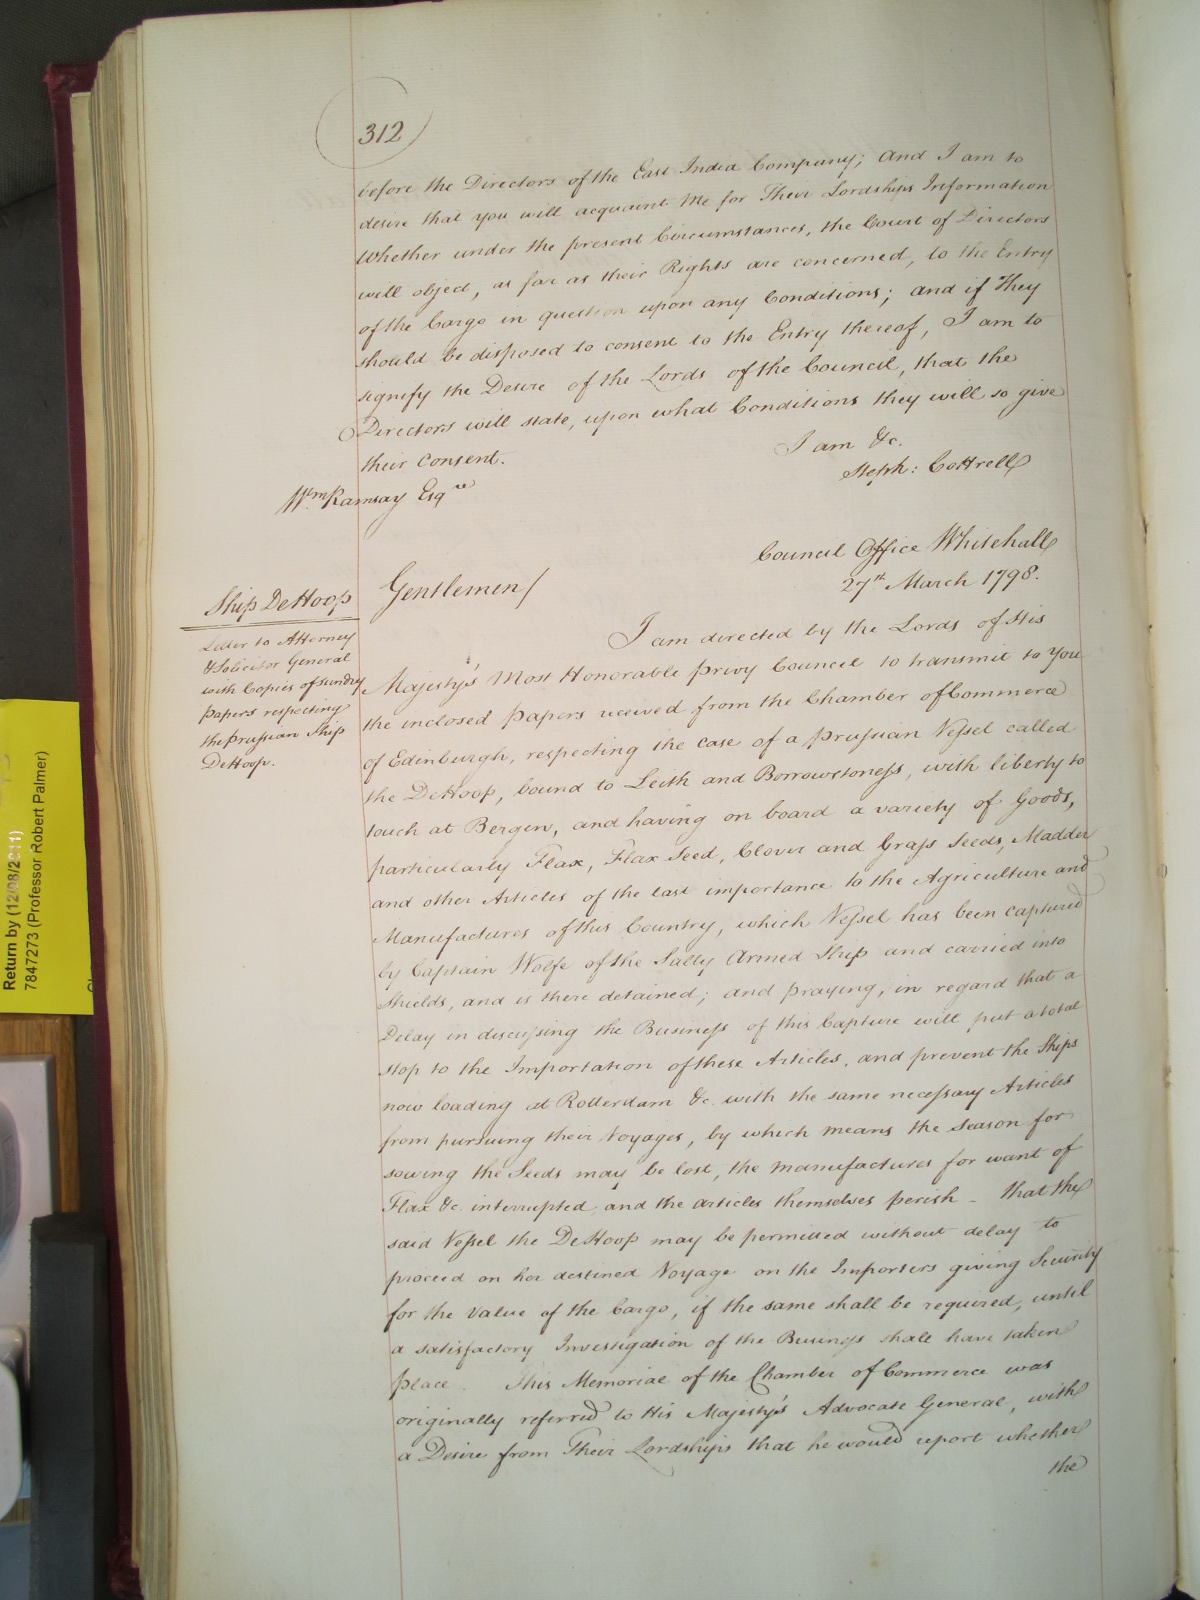 312
before the Directors of the East India Company; And I am to
desire that you will acquaint Me for Their Lordships Information
Whether under the present Circumstances, the Court of Directors
will object, as far as their Rights are concerned, to the Entry
of the Cargo in question upon any Conditions; and if They
should be disposed to consent to the Entry thereof, I am to
signify the Desire of the Lords of the Council, that the
Directors will state, upon what Conditions they will so give
their Consent.
I am &c.
Steph: Cottrell
Wm Ramsay Esqre
Council Office Whitehall
27th March 1798.
Ship DeHoop
Letter to Attorney
& Solicitor General
with Copies of sundry
Papers respecting
the Prussian Ship
DeHoop.
Gentlemen/
I am directed by the Lords of His
Majesty's Most Honorable Privy Council to transmit to You
the inclosed Papers received from the Chamber of Commerce
of Edinburgh, respecting the case of a Prussian Vessel called
the DeHoop, bound to Leith and Borrowstoness, with liberty to
touch at Bergen, and having on board a variety of Goods,
particularly Flax, Flax Seed, Clover and Grass Seeds, Madder
and other Articles of the last importance to the Agriculture and
Manufactures of this Country, which Vessel has been captured
by Captain Wolfe of the Sally Armed Ship and carried into
Shields, and is there detained; and praying, in regard that a
Delay in discussing the Business of this Capture will put a total
stop to the Importation of these Articles, and prevent the Ships
now loading at Rotterdam &c. with the same necessary Articles
from pursuing their Voyages, by which means the Season for
sowing the Seeds may be lost, the Manufactures for want of
Flax &c. interrupted, and the articles themselves perish - that the
said Vessel the DeHoop may be permitted without delay to
proceed on her destined Voyage on the Importers giving Security
for the Value of the Cargo, if the same shall be required, until
a satisfactory Investigation of the Business shall have taken
place. This Memorial of the Chamber of Commerce was
originally referred to His Majesty's Advocate General, with
a Desire from Their Lordships that he would report whether
the
Return by (12/08/2011)
7847273 (Professor Robert Palmer)